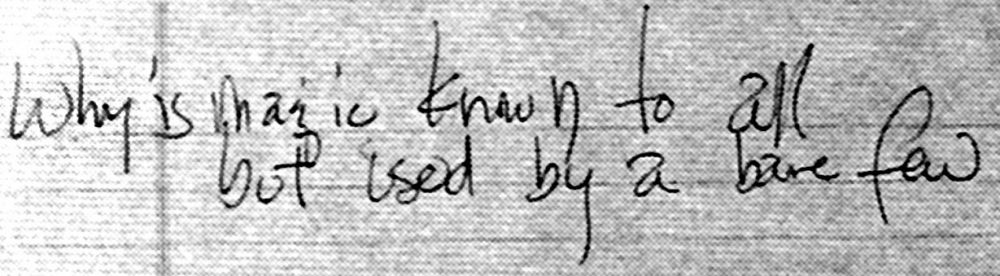 Why is magic known to all
but used by a bare few